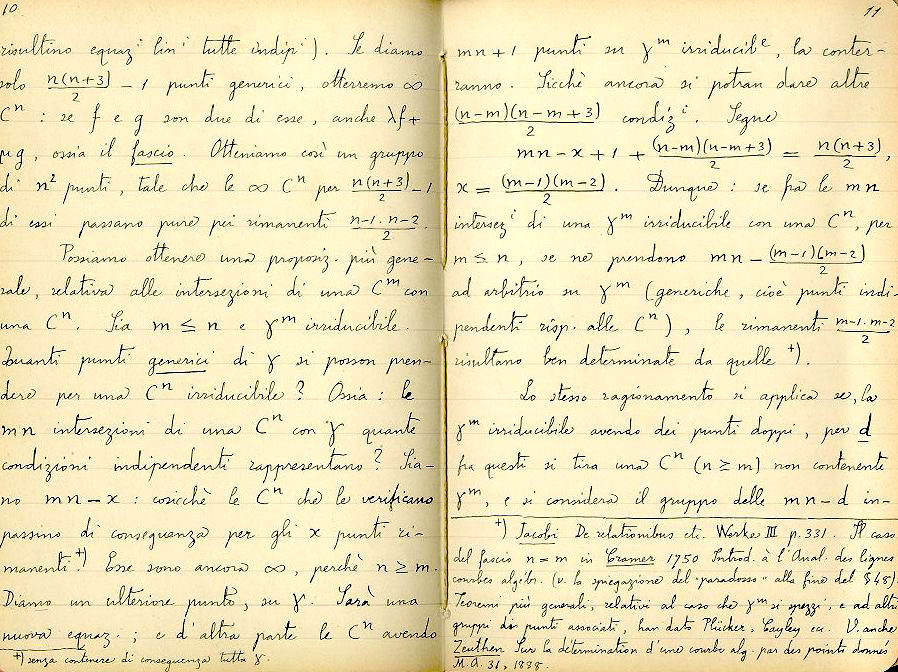 10
risultino equazⁱ linⁱ tutte indipⁱ). Se diamo
solo n(n+3)/2 − 1 punti generici, otterremo ∞
Cⁿ : se f e g son due di esse, anche λf+
μg, ossia il fascio. Otteniamo così un gruppo
di n² punti, tale che le ∞ Cⁿ per n(n+3)/2 − 1
di essi passano pure pei rimanenti n−1. n−2/2.
Possiamo ottenere una proposiz. più gene-
rale, relativa alle intersezioni di una Cᵐ con
una Cⁿ. Sia m ≤ n e γᵐ irriducibile.
Quanti punti generici di γ si posson pren-
dere per una Cⁿ irriducibile? Ossia: le
mn intersezioni di una Cⁿ con γ quante
condizioni indipendenti rappresentano? Sia-
no mn − x : cosicchè le Cⁿ che le verificano
passino di conseguenza per gli x punti ri-
manenti.⁺) Esse sono ancora ∞, perchè n ≥ m.
Diamo un ulteriore punto, su γ. Sarà una
nuova equaz. ; e d'altra parte le Cⁿ avendo
⁺) senza contenere di conseguenza tutta γ.
11
mn+1 punti su γᵐ irriducibᵉ, la conter-
ranno. Sicchè ancora si potran dare altre
(n−m)(n−m+3)/2 condizⁱ. Segue
mn − x + 1 + (n−m)(n−m+3)/2 = n(n+3)/2,
x = (m−1)(m−2)/2. Dunque : se fra le mn
intersezⁱ di una γᵐ irriducibile con una Cⁿ, per
m ≤ n, se ne prendono mn − (m−1)(m−2)/2
ad arbitrio su γᵐ (generiche, cioè punti indi-
pendenti risp. alle Cⁿ), le rimanenti m−1. m−2/2
risultano ben determinate da quelle ⁺).
Lo stesso ragionamento si applica se, la
γᵐ irriducibile avendo dei punti doppi, per d
fra questi si tira una Cⁿ (n ≥ m) non contenente
γᵐ, e si considera il gruppo delle mn − d in-
⁺) Jacobi De relationibus etc. Werke III p. 331. Il caso
del fascio n = m in Cramer 1750 Introd. à l'Anal. des lignes
courbes algébr. (v. la spiegazione del "paradosso" alla fine del §48).
Teoremi più generali, relativi al caso che γᵐ si spezzi, e ad altri
gruppi di punti associati, han dato Plücker, Cayley ecc. V. anche
Zeuthen Sur la détermination d'une courbe alg. par des points donnés
M. A. 31, 1888.